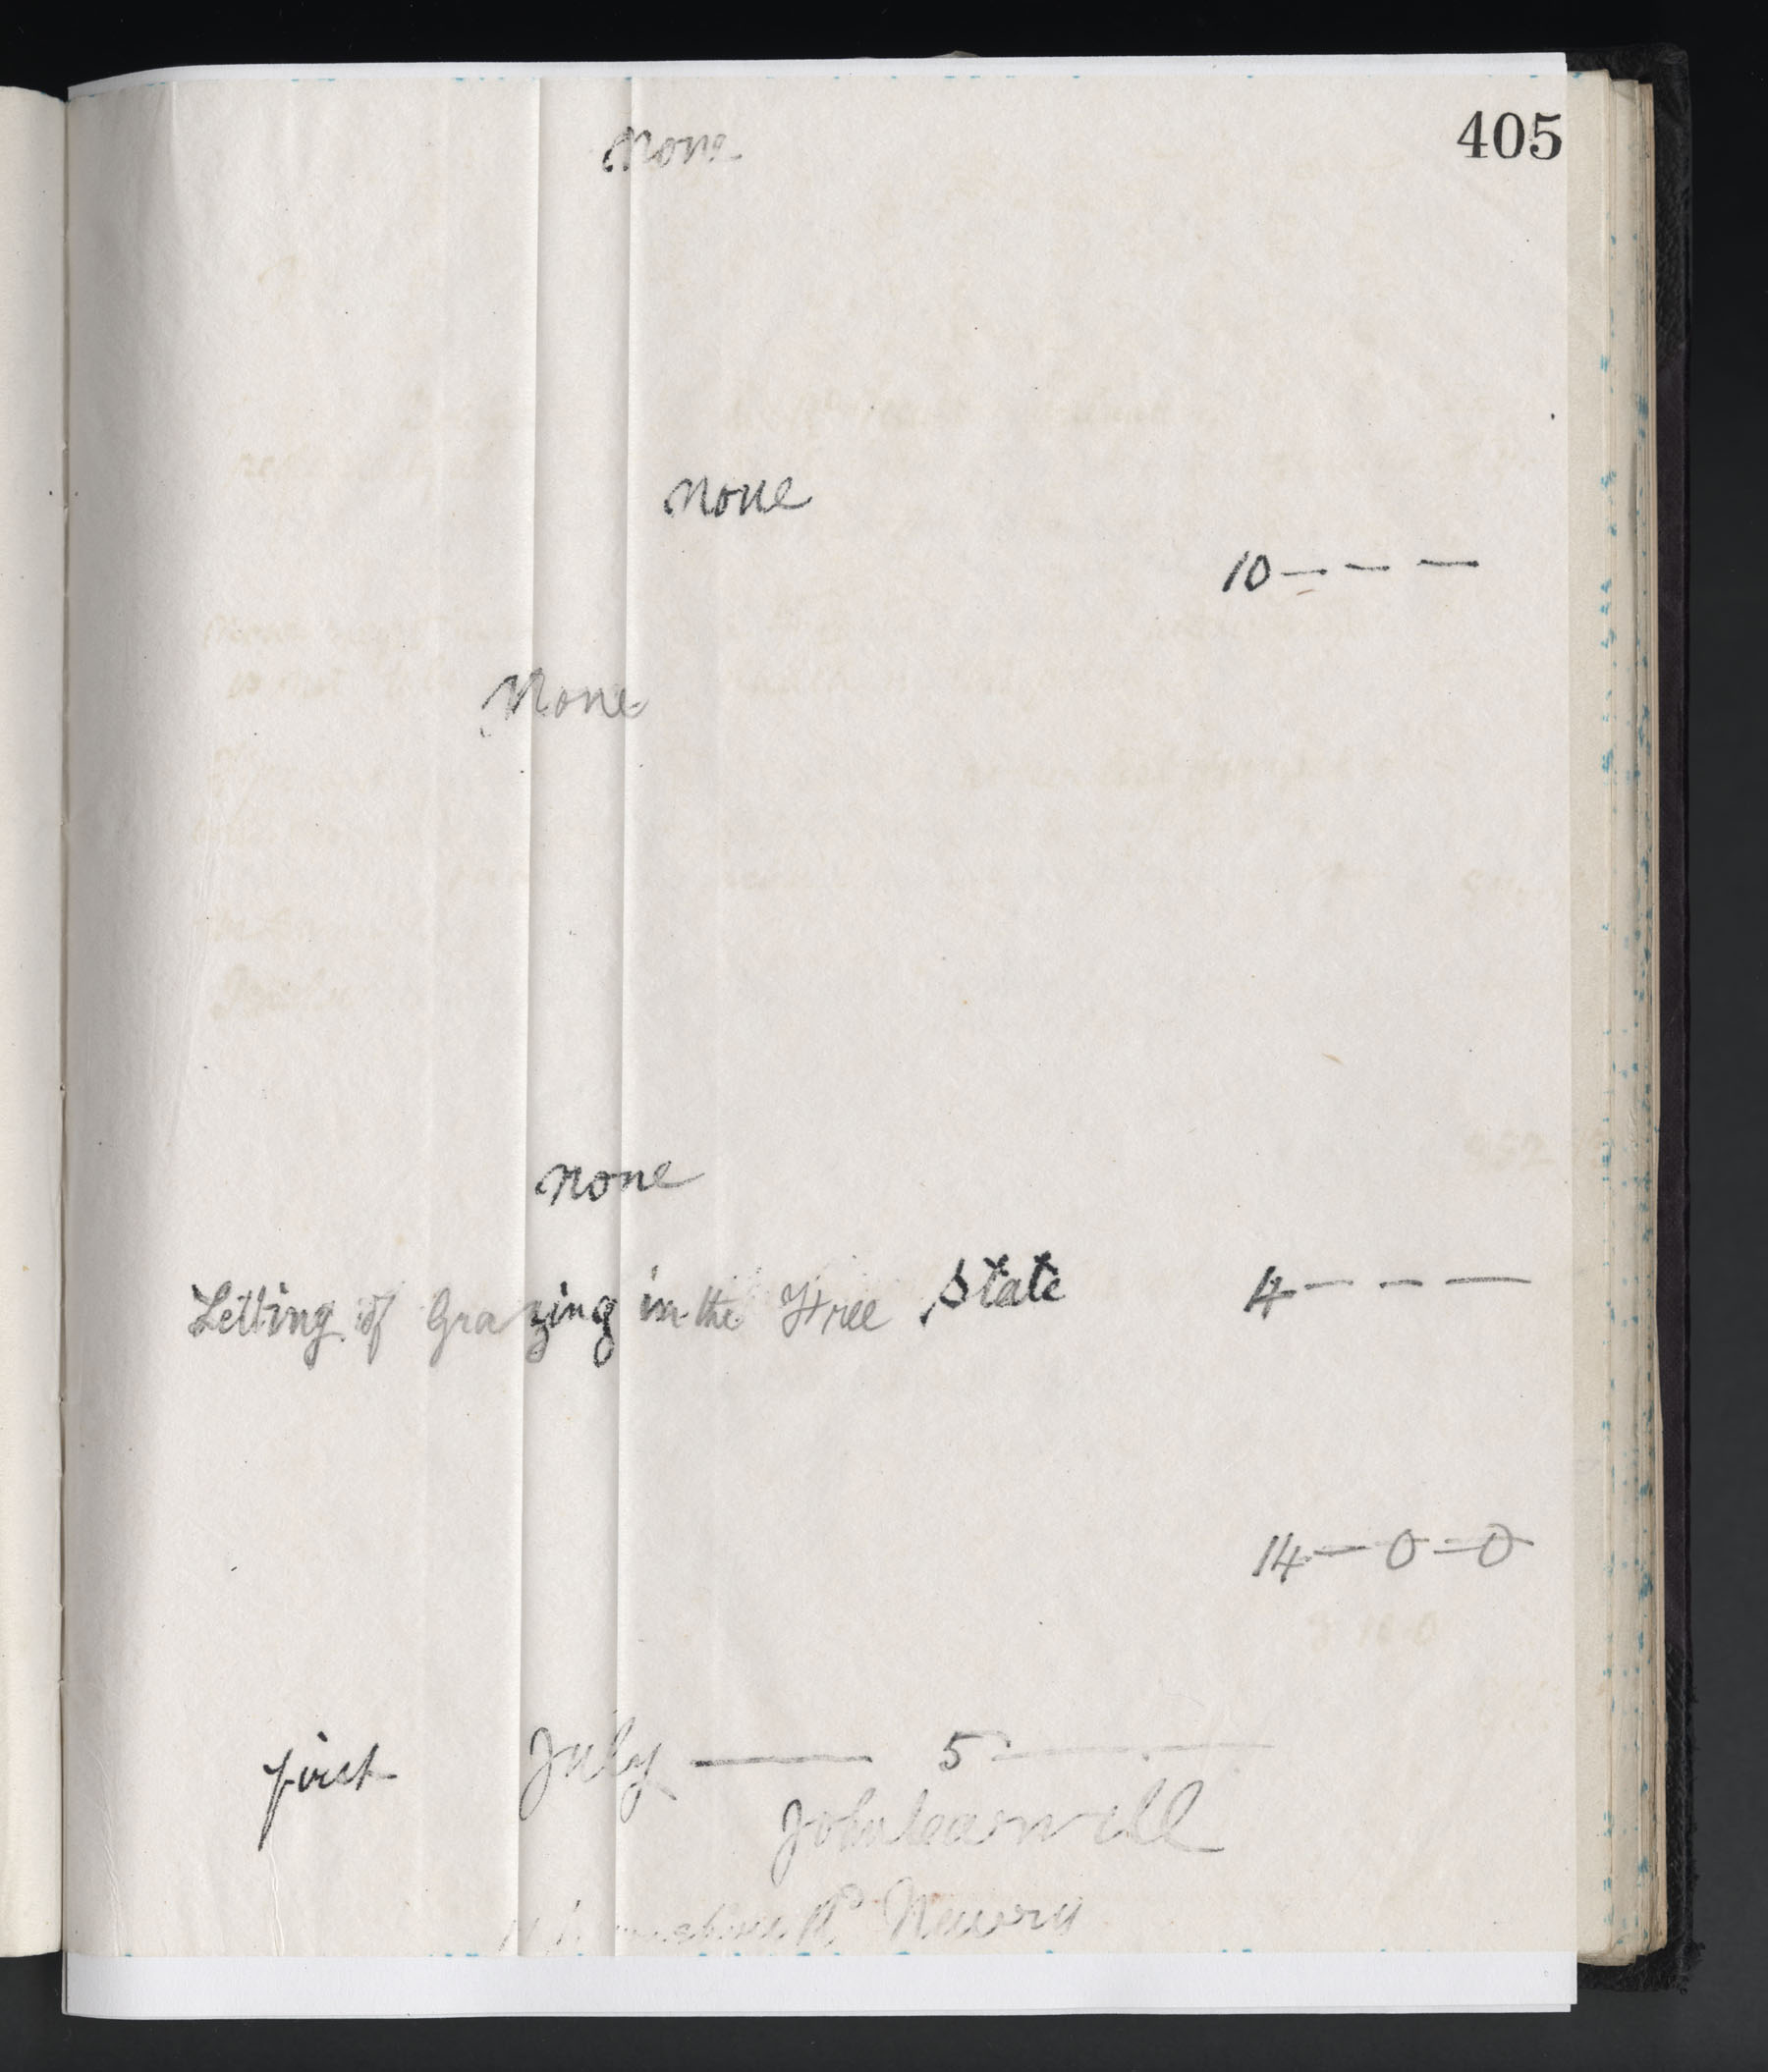 405
None
none
10 — — —
None
none
Letting of Grazing in the Free State 4 — — —
14 — 0 — 0
first July — 5 —
John
Newry